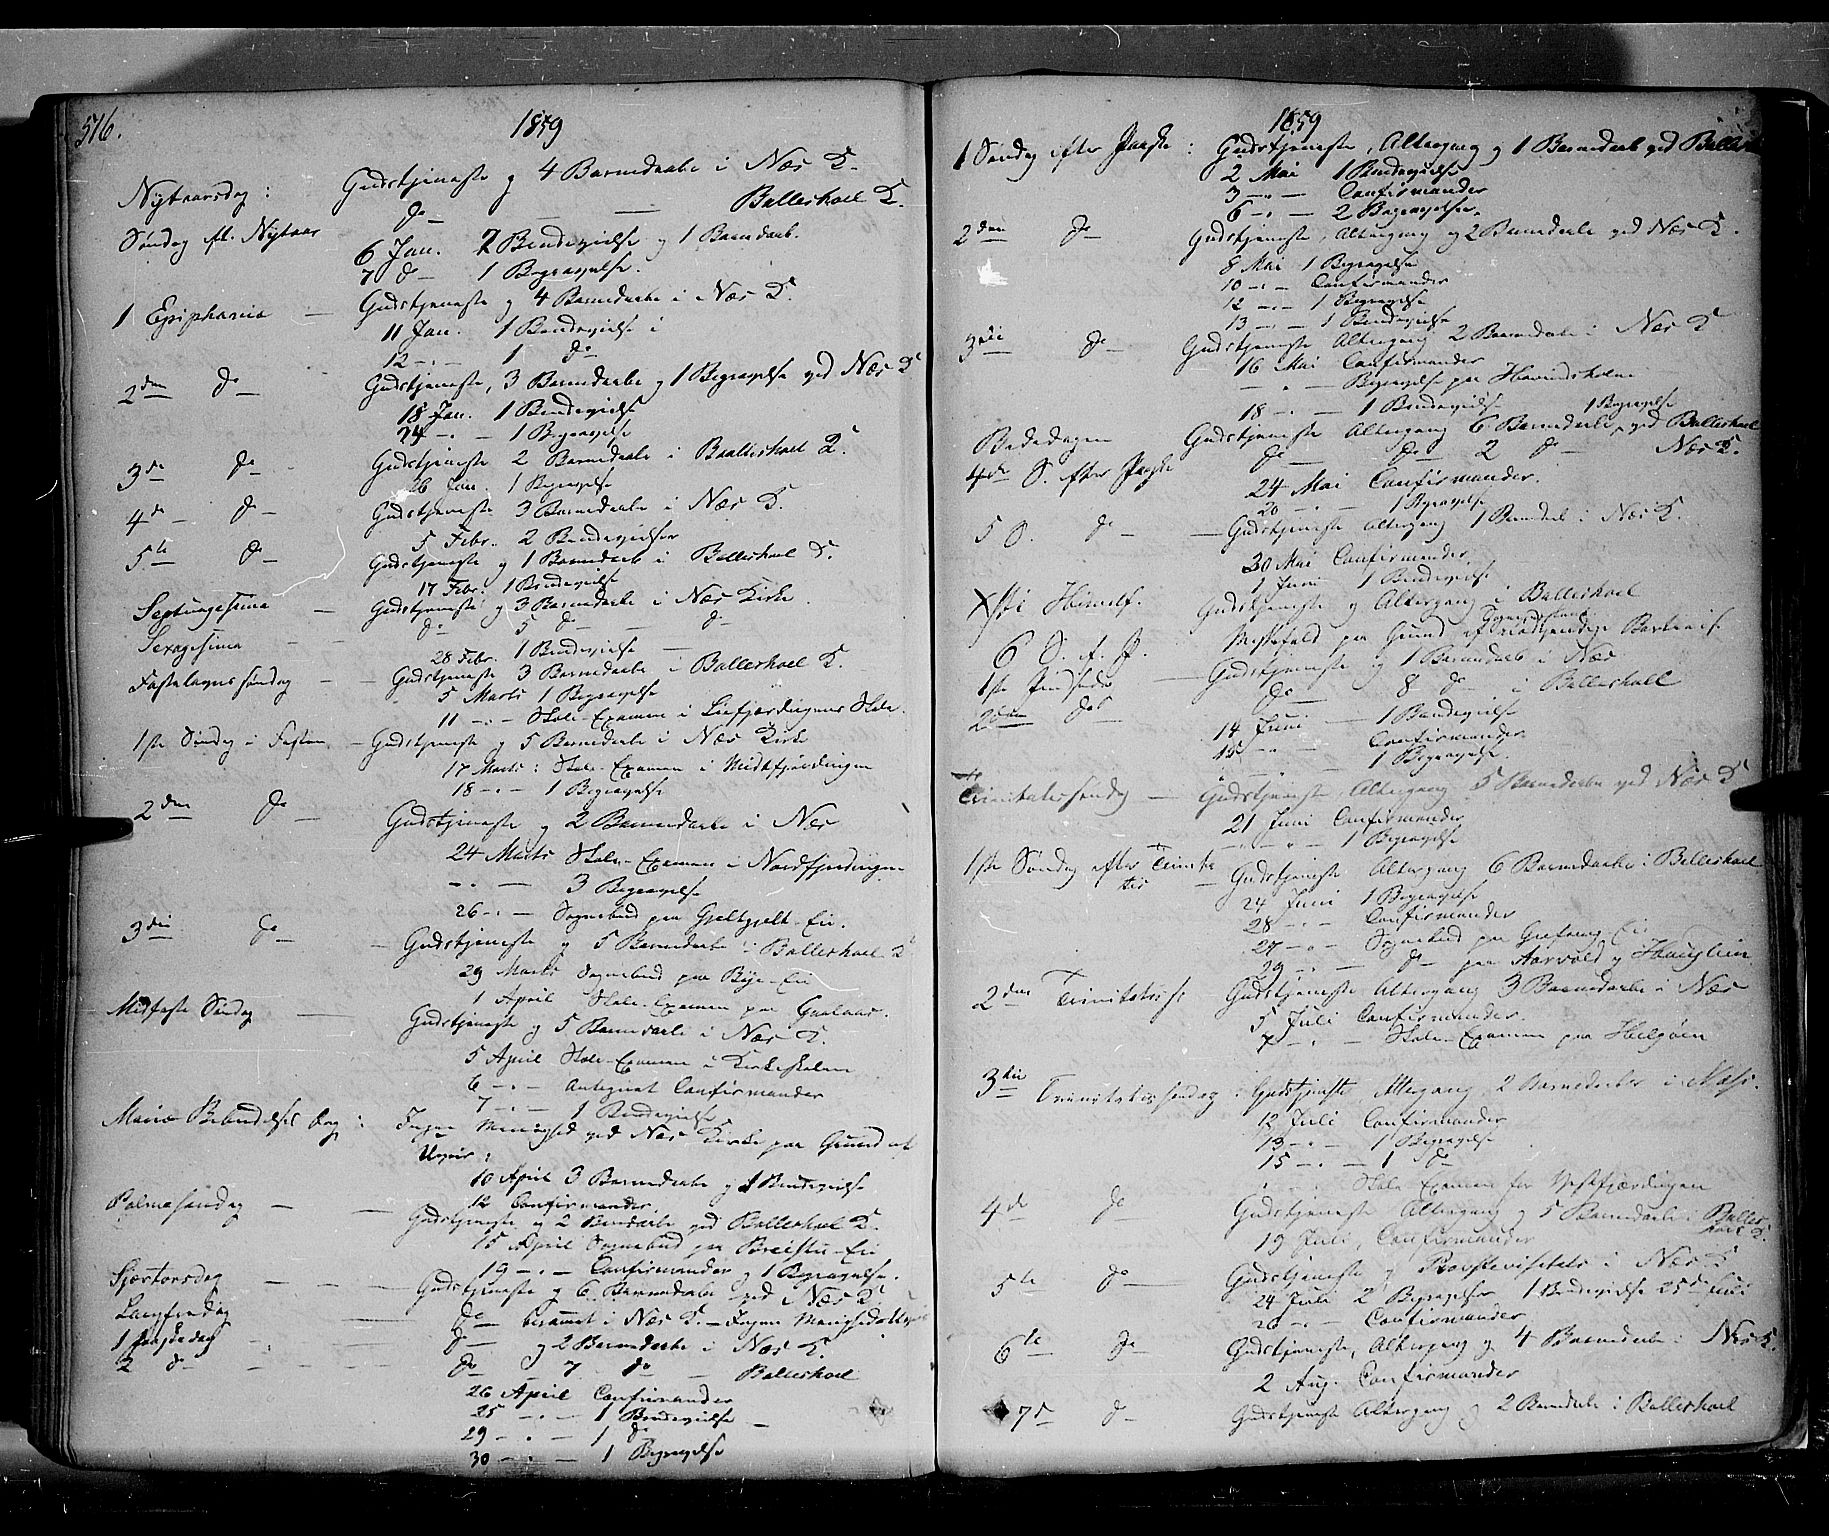 576.
1859
Nytaarsdag: Gudstjeneste og 4 Barnedaabe i Næs K.
Søndag eft. Nytaar do — — Balleshoel K.
6 Jan. 2 Brudevielse og 1 Barnedaab.
7 do — 1 Begravelse.
1 Epiphania — Gudstjeneste og 4 Barnedaabe i Næs K.
11 Jan. 1 Brudevielse i
12 -"- — 1 do
2den do — Gudstjeneste, 3 Barnedaabe og 1 Begravelse ved Næs K
18 Jan. 1 Brudevielse
24 -"- — 1 Begravelse
3de do Gudstjeneste 2 Barnedaabe i Balleshoel K.
26 Jan. 1 Begravelse
4de — do — Gudstjeneste 3 Barnedaabe i Næs K.
5 Febr. 2 Brudevielser
5te do — Gudstjeneste og 1 Barnedaab i Balleshoel K.
17 Febr. 1 Brudevielse
Septuagesima — Gudstjeneste og 3 Barnedaabe i Næs Kirke.
Sexagesima — — do 5 do — do —
28 Febr. 1 Brudevielse —
Fastelavns søndag — — Gudstjeneste 3 Barnedaabe i Balleshoel K.
5 Marts 1 Begravelse
11 -"- — Skole-Examen i Liefjerdingens Skole.
1ste Søndag i Fasten — Gudstjeneste og 5 Barnedaabe i Næs Kirke
17 Marts: Skole-Examen i Midtfjerdingen
18 -"- — 1 Begravelse
2den do Gudstjeneste og 2 Barnedaabe i Næs
24 Marts Skole-Examen i Nordfjerdingen
-"- — 3 Begravelse
26 -"- — Sognebud paa Gjeltgjelt-Eie.
3die do — — Gudstjeneste og 5 Barnedaabe i Balleshoel K
29 Marts Sognebud paa Bye-Eie
1 April Skole-Examen paa
Midfaste Søndag — Gudstjeneste og 5 Barnedaabe i Næs K.
5 April Skole-Examen i Kirkeskolen
6 -"- — Antegnet Confirmander
7 -"- — 1 Brudevielse
Maria Bebudelses Dag: Ingen Menighed ved Næs Kirke paa Grund af
Uveir:
10 April 3 Barnedaabe og 1 Brudevielse
12 Confirmander.
Palmesøndag — — Gudstjeneste og 2 Barnedaabe ved Balleshoel K.
15 April Sognebud paa -Eie
19 -"- — Confirmander og 1 Begravelse.
Skjærtorsdag — — — Gudstjeneste og 6 Barnedaabe ved i Næs K
Langfredag — do — berammet i Næs K. — Ingen Menighed
1 Paaskedag — do — og 2 Barnedaabe i Næs K.
2 do — — — do — 7 do — Balleshoel
26 April Confirmander
25 -"- — 1 Brudevielse
29 -"- — 1 do —
30 -"- — 1 Begravelse
1859
1 Søndag efter Paaske: Gudstjeneste, Altergang og 1 Barnedaab ved Balles
2 Mai 1 Brudevielse
3 -"- — Confirmander
6 -"- — 2 Begravelser.
2den do Gudstjeneste, Altergang og 2 Barnedaabe ved Næs K.
8 Mai 1 Begravelse
10 -"- Confirmander
12 -"- 1 Begravelse
13 -"- — 1 Brudevielse
3die do — Gudstjeneste Altergang 2 Barnedaabe i Næs K
16 Mai Confirmander
— " — Begravelse paa
18 -"- — 1 Brudevielse 1 Begravelse
Bededagen Gudstjeneste Altergang 6 Barnedaabe ved Balleshoel
4de S. efter Paaske do — do — 2 do — Næs K.
24 Mai Confirmander.
20 -"- — 1 Begravelse
5 S. do — — Gudstjeneste Altergang 1 Barnedaab i Næs K.
30 Mai Confirmander
1 Juni 1 Brudevielse
Xsti Himmelf. Gudstjeneste og Altergang i Balleshoel
6 S. e. P. Messefald paa Grund af nødvendige
1ste Pindsedag — Gudstjeneste og 1 Barnedaab i Næs
2den do do — 8 do — i Balleshoel
14 Juni — 1 Brudevielse
15 -"- Confirmander
" " — 1 Begravelse.
Trinitatissøndag — Gudstjeneste Altergang 5 Barnedaabe ved Næs K
21 Juni Confirmander
-"- -"- — 1 Begravelse
1ste Søndag efter Trinita
tis — Gudstjeneste Altergang 6 Barnedaabe i Balleshoel
24 Juni 1 Begravelse
28 -"- Confirmander
27 -"- Sognebud paa Eie
29 -"- — do — paa Aarvold og
2den Trinitatis f. Gudstjeneste Altergang 3 Barnedaabe i Næs
5 Juli Confirmander.
7 -"- Skole-Examen paa Helgøen
3die Trinitatis søndag: Gudstjeneste, Altergang, 2 Barnedaaber i Næs.
12 Juli Confirmander
13 -"- — 1 Begravelse
15 -"- — 1 do
" " Skole Examen for Vestfjerdingen
4de do Gudstjeneste Altergang og 5 Barnedaabe i Balles
hoel K.
19 Juli, Confirmander
5te do — Gudstjeneste og Provstevisitats i Næs K
24 Juli 2 Begravelser 1 Brudevielse 25de Juli
26 -"- Confirmander
6te do Gudstjeneste, Altergang og 4 Barnedaabe i Næs K.
2 Aug. Confirmander
7de do — Gudstjeneste Altergang og 2 Barnedaabe i Balleshoel